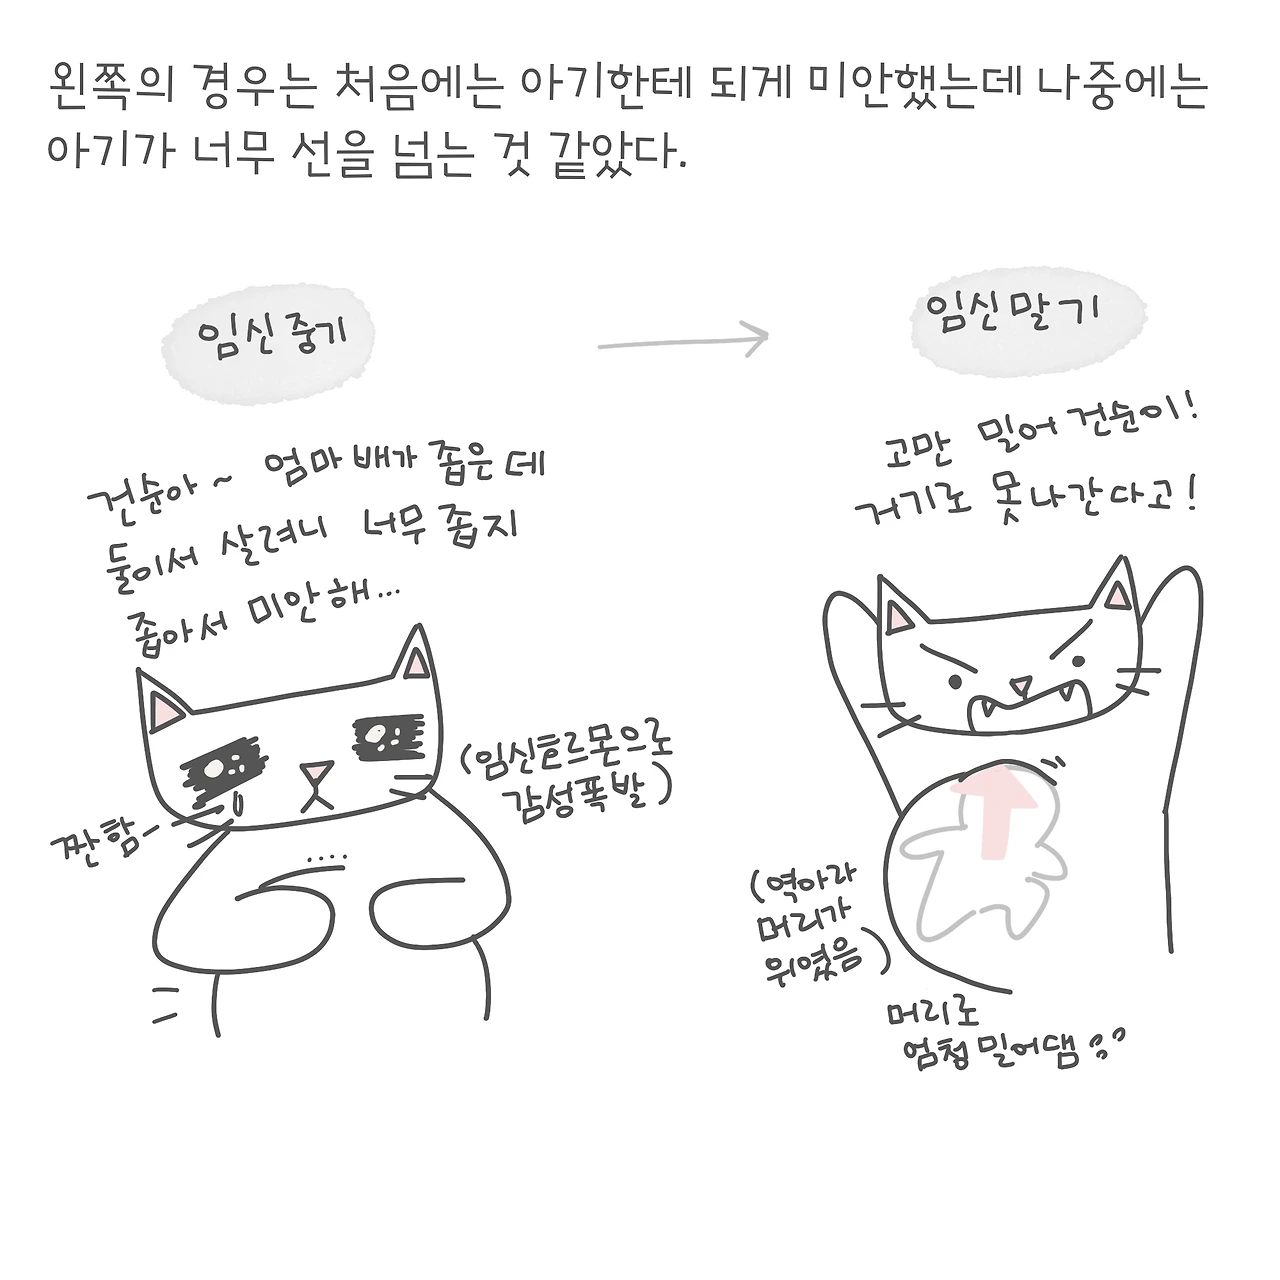 왼쪽의 경우는 처음에는 아기한테 되게 미안했는데 나중에는
아기가 너무 선을 넘는 것 같았다.
임신 중기
건순아~ 엄마 배가 좁은데
둘이서 살려니 너무 좁지
좁아서 미안해...
(임신호르몬으로
감성폭발)
짠함-
....
임신 말기
고만 밀어 건순이!
거기로 못나간다고!
(역아라
머리가
위였음)
머리로
엄청 밀어댐